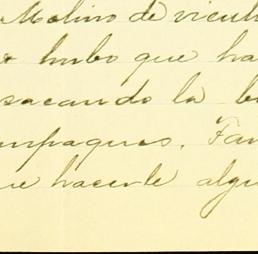 Molino de vicul
hubo que ha
sacando la b
mpaques. Tam
ue hacerle algu